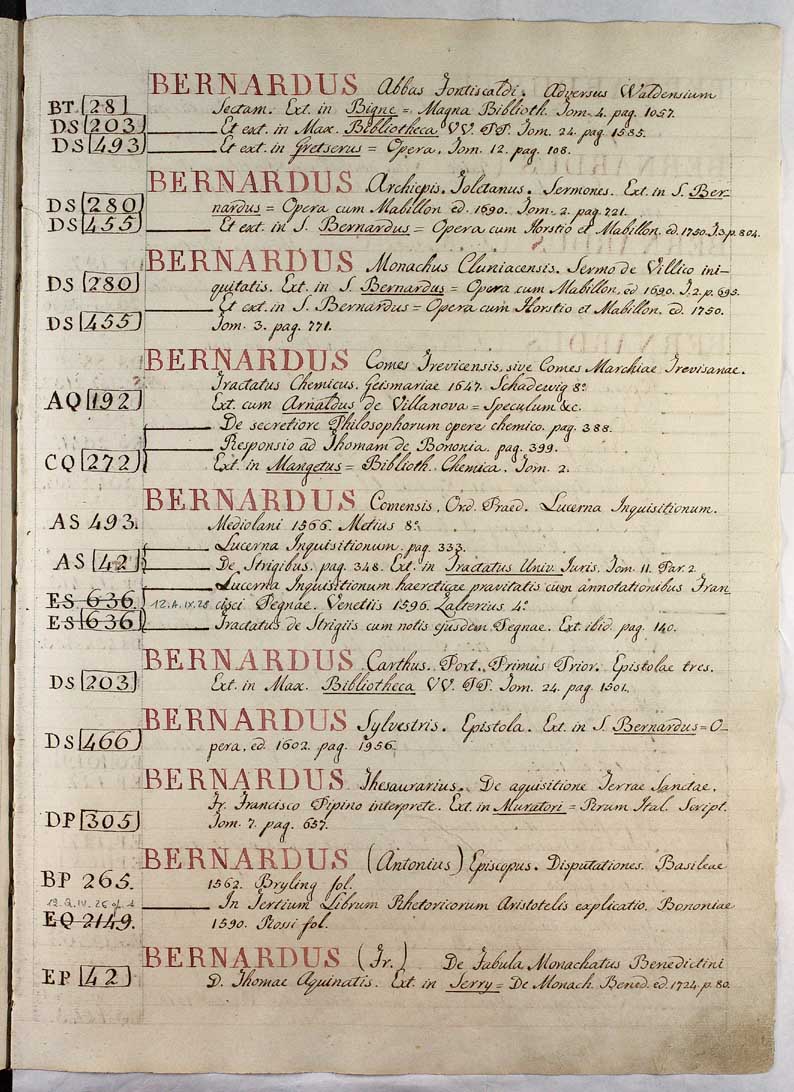 BERNARDUS Abbas Fontiscaldi. Adversus Waldensium
BT. 28 Sectam. Ext. in Bigne = Magna Biblioth. Tom. 4. pag. 1057.
DS 203 Et ext. in Max. Bibliotheca VV. PP. Tom. 24. pag. 1585.
DS 493 Et ext. in Gretserus = Opera. Tom. 12. pag. 108.
BERNARDUS Archiepis. Toletanus. Sermones. Ext. in S. Ber-
DS 280 nardus = Opera cum Mabillon ed. 1690. Tom. 2. pag. 721.
DS 455 Et ext. in S. Bernardus = Opera cum Horstio et Mabillon. ed. 1750. T.3. p. 804.
BERNARDUS Monachus Cluniacensis. Sermo de Villico ini-
DS 280 quitatis. Ext. in S. Bernardus = Opera cum Mabillon, ed 1690. T. 2. p. 695.
Et ext. in S. Bernardus = Opera cum Horstio et Mabillon. ed. 1750.
DS 455 Tom. 3. pag. 771.
BERNARDUS Comes Trevicensis, sive Comes Marchiae Trevisanae.
Tractatus Chemicus. Geismariae 1647. Schadewig 8º
AQ 192 Ext. cum Arnaldus de Villanova = Speculum &c.
De secretiore Philosophorum opere chemico. pag. 388.
Responsio ad Thomam de Bononia. pag. 399.
CQ 272 Ext. in Mangetus = Biblioth. Chemica. Tom. 2.
BERNARDUS Comensis, Ord. Praed. Lucerna Inquisitionum.
AS 493. Mediolani 1566. Metius 8º
Lucerna Inquisitionum. pag. 333.
AS 42 De Strigibus. pag. 348. Ext. in Tractatus Univ. Juris. Tom. 11. Par. 2
Lucerna Inquisitionum haereticae pravitatis cum annotationibus Fran-
ES 636 12.A.IX.28 cisci Pegnae. Venetiis 1596. Zalterius 4º
ES 636 Tractatus de Strigiis cum notis ejusdem Pegnae. Ext. ibid. pag. 140.
BERNARDUS Carthus. Port. Primus Prior. Epistolae tres.
DS 203 Ext. in Max. Bibliotheca VV. PP. Tom. 24. pag. 1501.
BERNARDUS Sylvestris. Epistola. Ext. in S. Bernardus = O-
DS 466 pera, ed. 1602. pag. 1956.
BERNARDUS Thesaurarius. De aquisitione Terrae Sanctae.
Fr. Francisco Pipino interprete. Ext. in Muratori = Rerum Ital. Script.
DP 305 Tom. 7. pag. 657.
BERNARDUS (Antonius) Episcopus. Disputationes. Basileae
BP 265. 1562. Bryling fol.
In Tertium Librum Rhetoricorum Aristotelis explicatio. Bononiae
EQ 2149. 1590. Rossi fol.
BERNARDUS (Fr.) De Fabula Monachatus Benedictini
EP 42 D. Thomae Aquinatis. Ext. in Serry = De Monach. Bened. ed. 1724. p. 80.